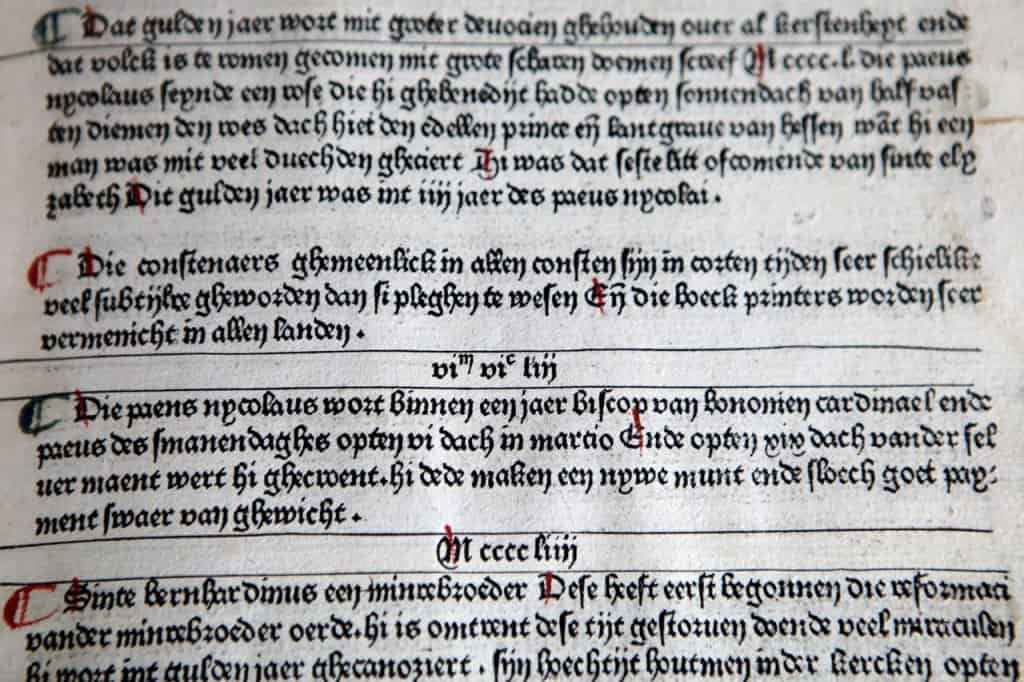 Dat gulden jaer wort mit groter deuocien ghehouden ouer al kerstenheyt ende
dat volck is te romen gecomen mit grote scharen doemen screef M cccc.l. die paeus
nycolaus seynde een rose die hi ghebenedijt hadde opten sonnendach van half vas
ten diemen den roes dach hiet den edellen prince eñ lantgraue van hessen wãt hi een
man was mit veel duechden gheciert Hi was dat seste litt ofcomende van sinte ely
zabeth Dit gulden jaer was int iiij jaer des paeus nycolai.
Die constenaers ghemeenlick in allen consten sijn in corten tijden seer schielike
veel subtijlre gheworden dan si pleghen te wesen Eñ die boeck printers worden seer
vermenicht in allen landen.
viᵐ viᶜ liij
Die paeus nycolaus wort binnen een jaer biscop van bononien cardinael ende
paeus des smanendaghes opten vi dach in marcio Ende opten xix dach vander sel
uer maent wert hi ghecroent.hi dede maken een nywe munt ende sloech goet pay⸗
ment swaer van ghewicht.
M cccc liiij
Sinte bernhardinus een minrebroeder Dese heeft eerst begonnen die reformaci
vander minrebroeder oerde.hi is omtrent dese tijt gestoruen doende veel miraculen
hi wort int gulden jaer ghecanoziert. sijn hoechtijt houtmen inder kercken opten